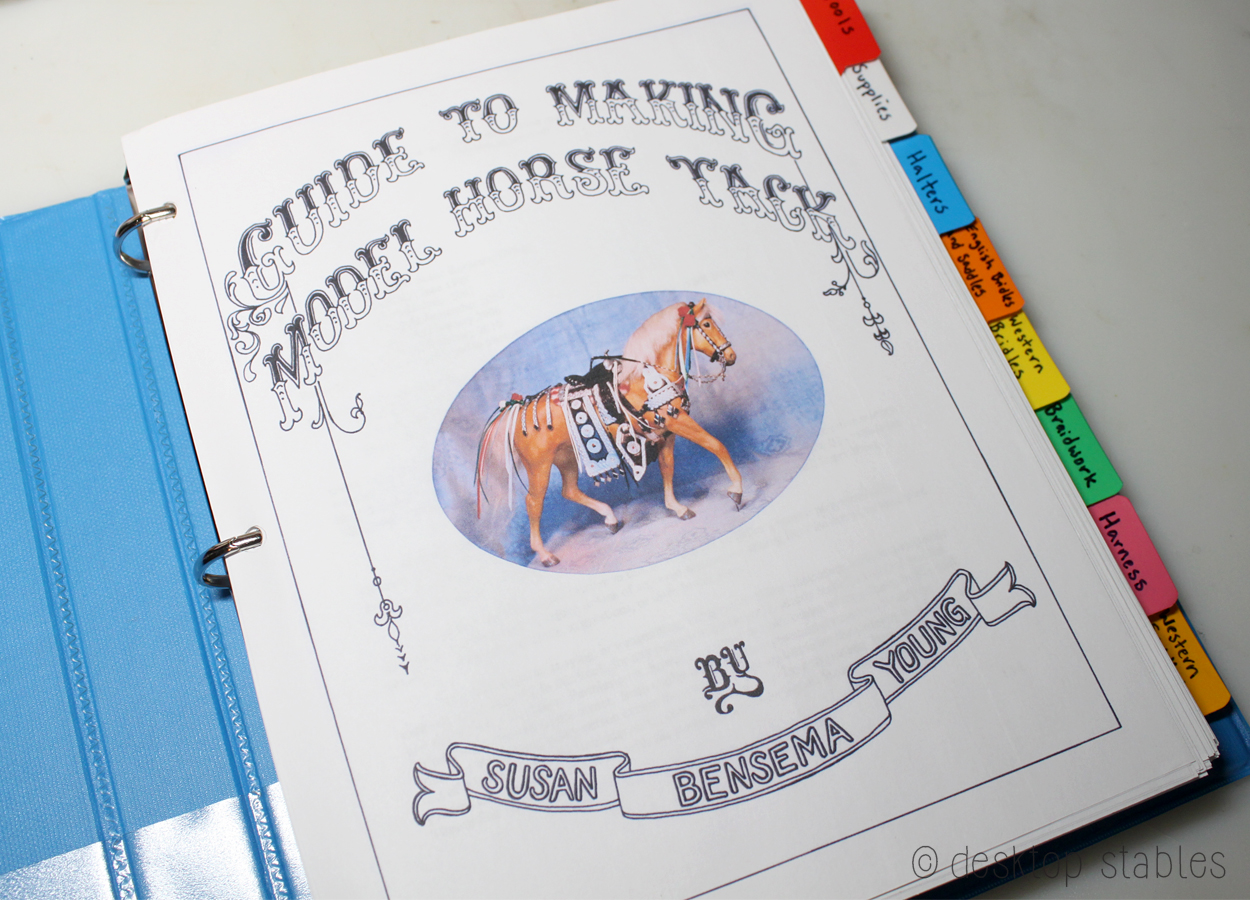 GUIDE TO MAKING
MODEL HORSE TACK
BY
SUSAN BENSEMA YOUNG
Supplies
Halters
English Bridles
and Saddles
Western
Bridles
Braidwork
Harness
Western
© desktop stables